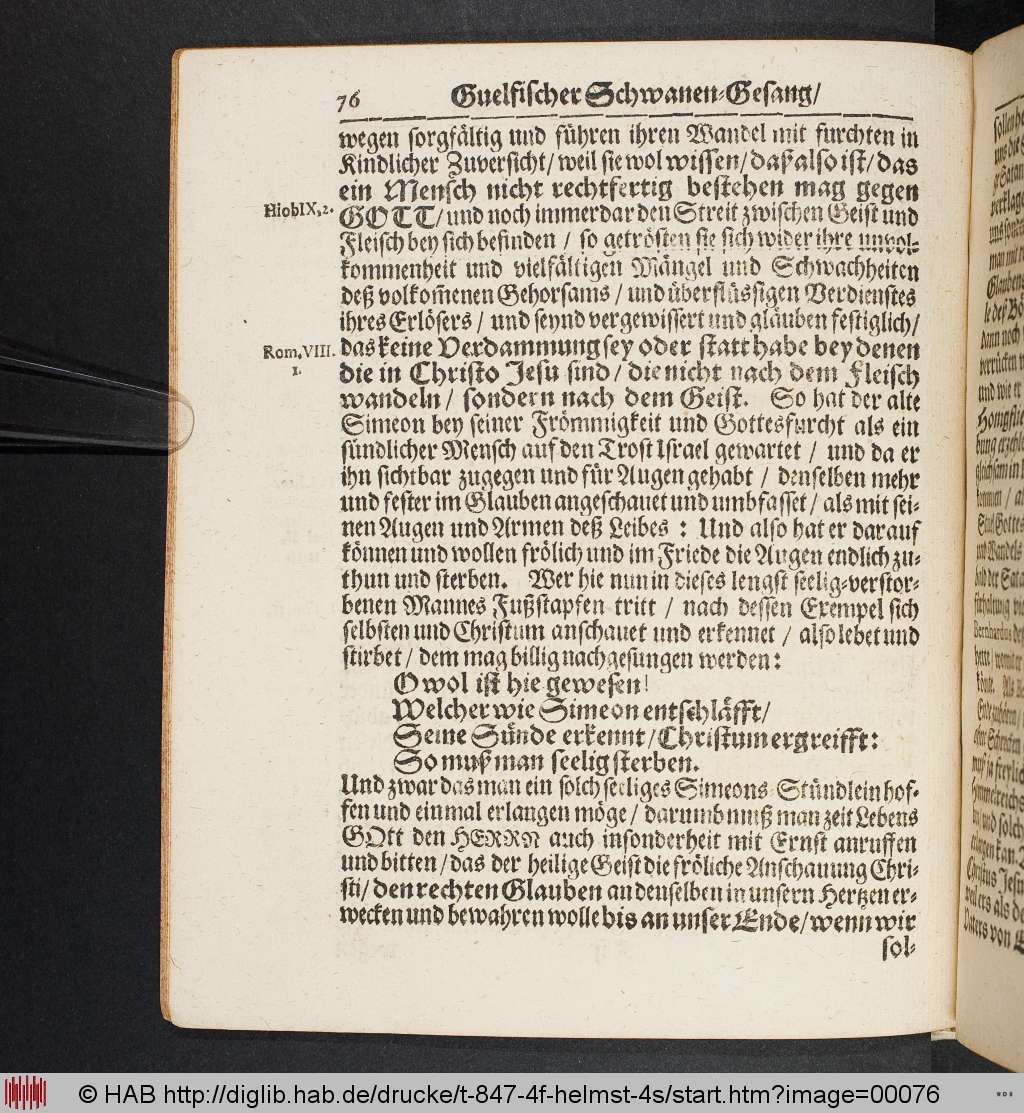 76 Guelfischer Schwanen-Gesang/
wegen sorgfältig und führen ihren Wandel mit furchten in
Kindlicher Zuversicht/ weil sie wol wissen/ daß also ist/ das
ein Mensch nicht rechtfertig bestehen mag gegen
Hiob IX, 2.
GOTT/ und noch immerdar den Streit zwischen Geist und
Fleisch bey sich befinden / so getrösten sie sich wider ihre unvol-
kommenheit und vielfältigen Mängel und Schwachheiten
deß volkom̃enen Gehorsams / und überflüssigen Verdienstes
ihres Erlösers / und seynd vergewissert und gläuben festiglich/
Rom. VIII.
1.
das keine Verdammung sey oder statt habe bey denen
die in Christo Jesu sind/ die nicht nach dem Fleisch
wandeln/ sondern nach dem Geist. So hat der alte
Simeon bey seiner Frömmigkeit und Gottesfurcht als ein
sündlicher Mensch auf den Trost Israel gewartet / und da er
ihn sichtbar zugegen und für Augen gehabt / denselben mehr
und fester im Glauben angeschauet und umbfasset / als mit sei-
nen Augen und Armen deß Leibes : Und also hat er darauf
können und wollen frölich und im Friede die Augen endlich zu-
thun und sterben. Wer hie nun in dieses lengst seelig-verstor-
benen Mannes Fußstapfen tritt / nach dessen Exempel sich
selbsten und Christum anschauet und erkennet / also lebet und
stirbet / dem mag billig nachgesungen werden :
O wol ist hie gewesen!
Welcher wie Simeon entschläfft/
Seine Sünde erkennt/ Christum ergreifft:
So muß man seelig sterben.
Und zwar das man ein solch seeliges Simeons-Stündlein hof-
fen und einmal erlangen möge / darumb muß man zeit Lebens
GOtt den HERRN auch insonderheit mit Ernst anruffen
und bitten / das der heilige Geist die fröliche Anschauung Chri-
sti/ den rechten Glauben an denselben in unsern Hertzen er-
wecken und bewahren wolle bis an unser Ende/ wenn wir
sol-
© HAB http://diglib.hab.de/drucke/t-847-4f-helmst-4s/start.htm?image=00076